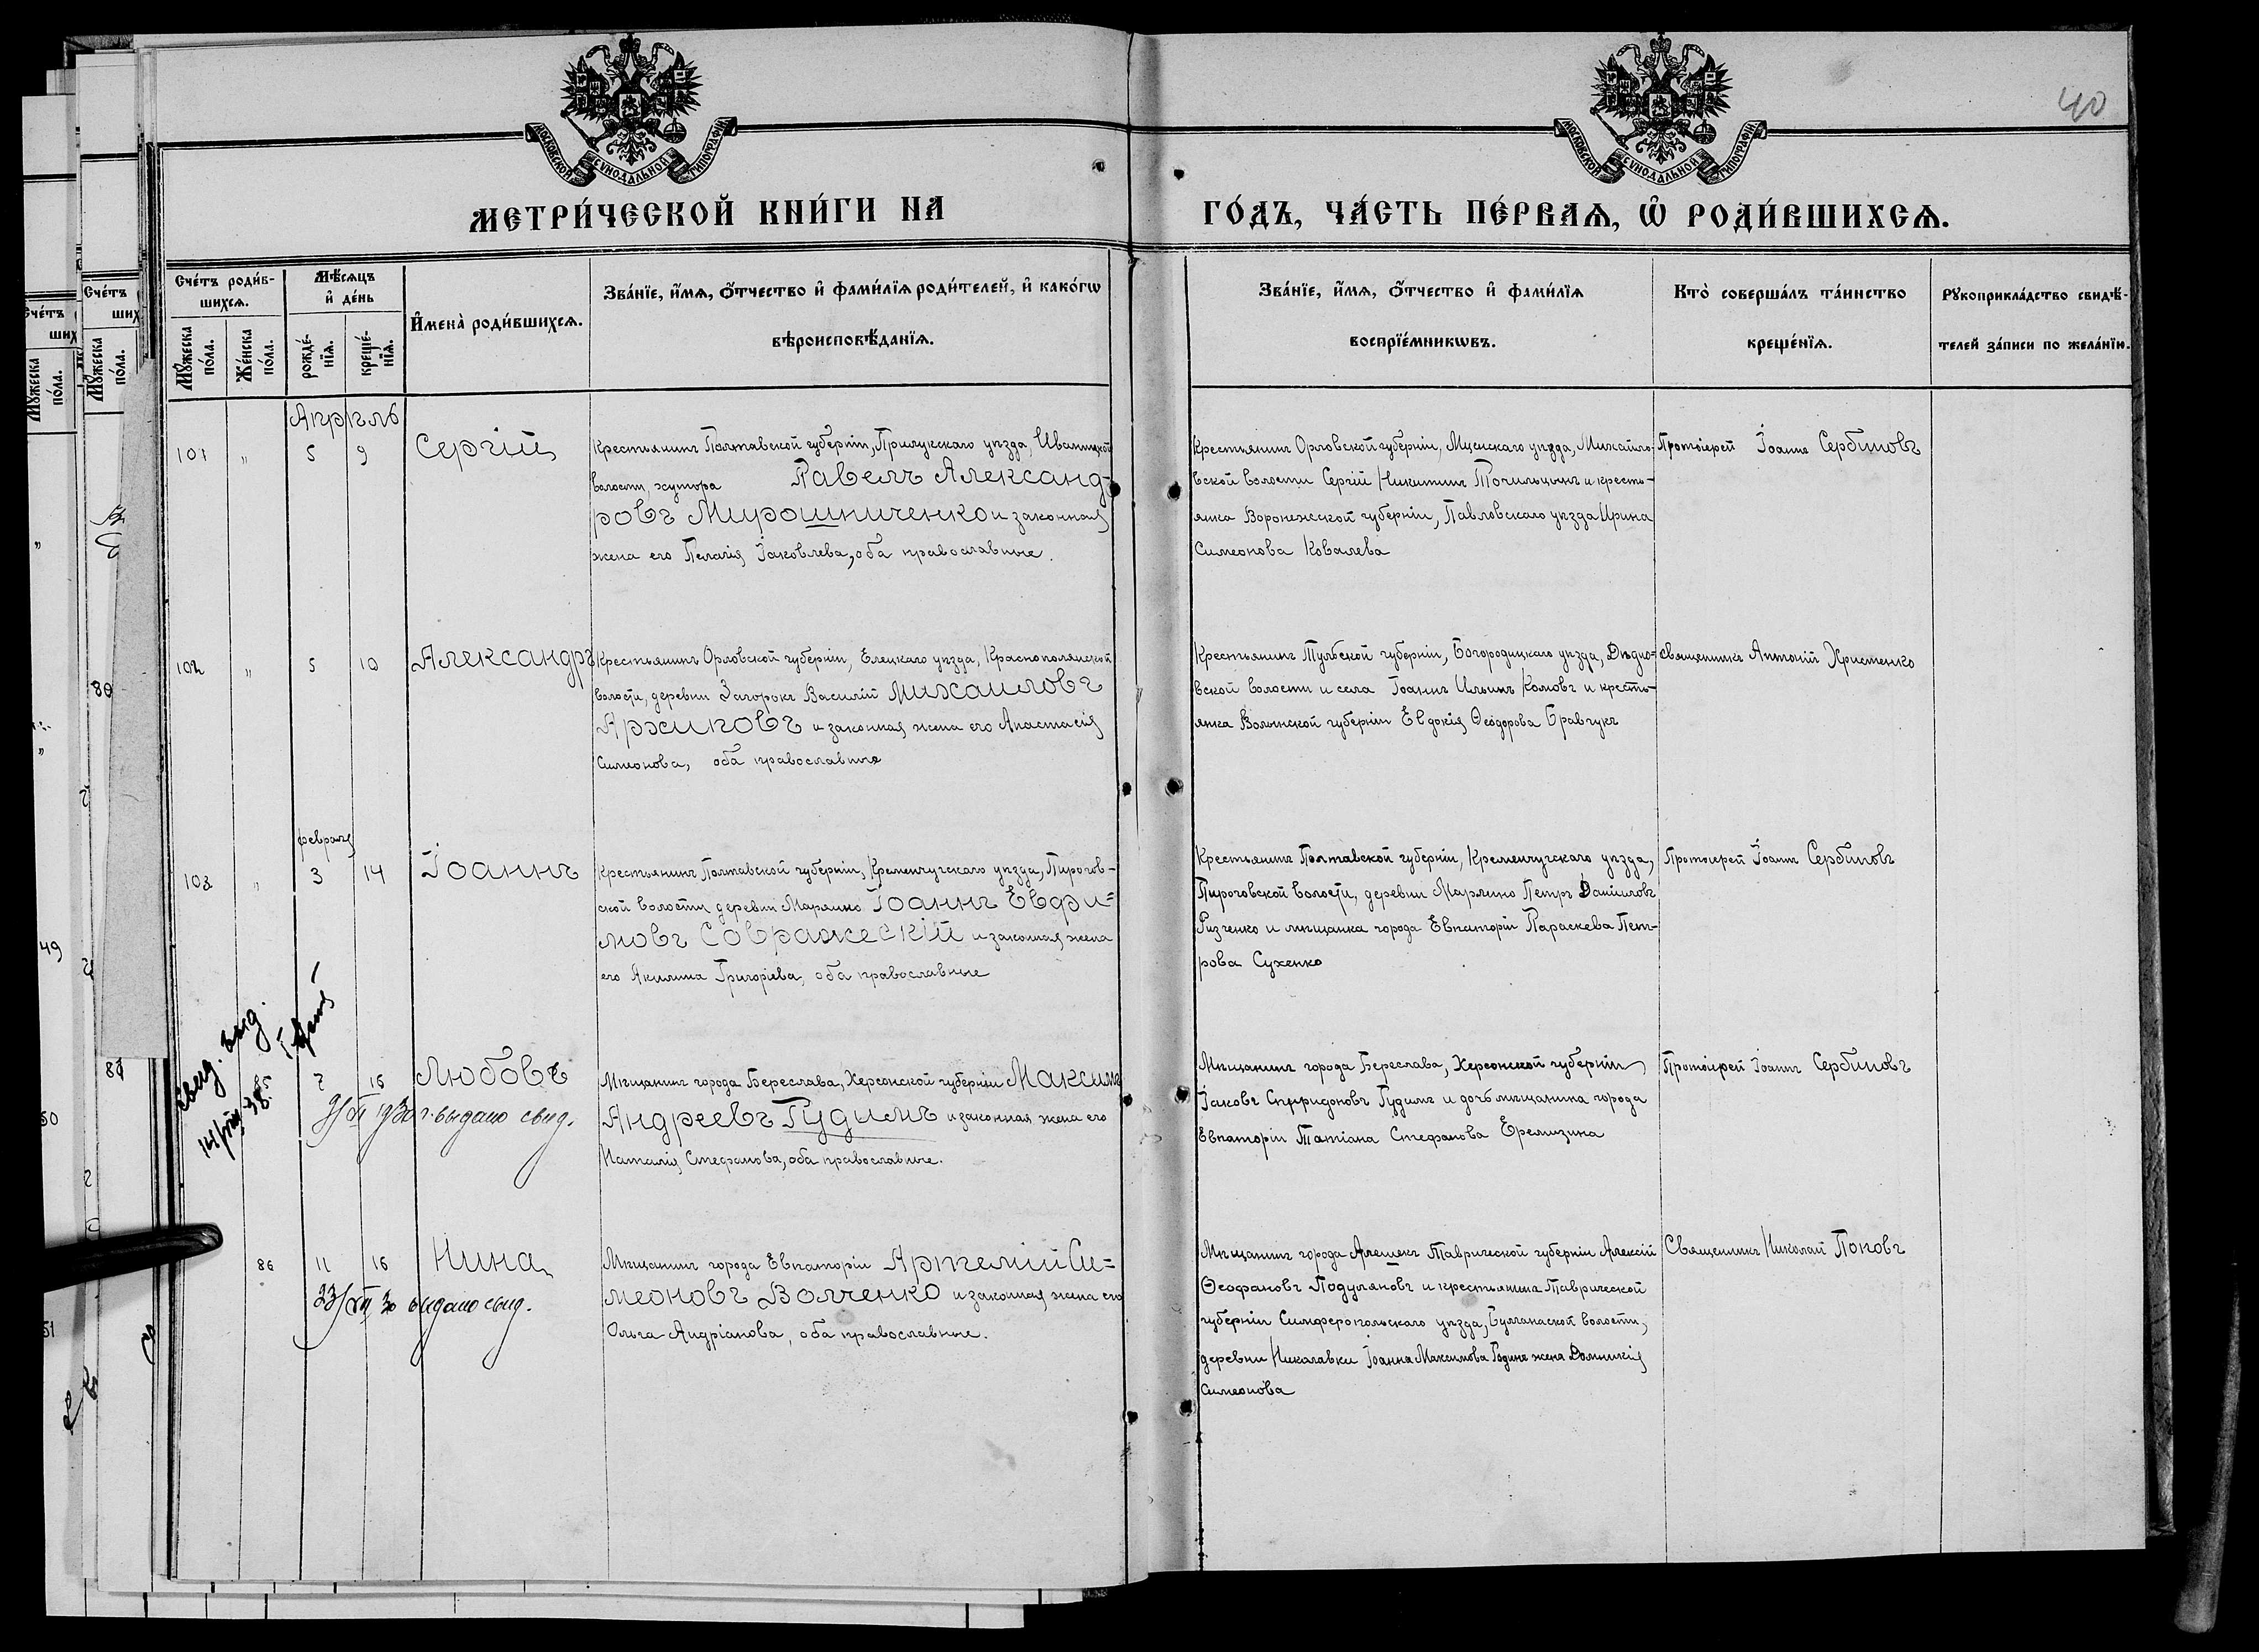 40
МОСКОВСКОЙ СѴНОДАЛЬНОЙ ТИПОГРАФІИ.
МОСКОВСКОЙ СѴНОДАЛЬНОЙ ТИПОГРАФІИ.
МЕТРИ́ЧЕСКОЙ КНИ́ГИ НА
ГО́ДЪ, ЧА́СТЬ ПЕ́РВАѦ, Ѽ РОДИ́ВШИХСѦ.
Сче́тъ роди́в-
шихсѧ.
Мꙋ́жеска по́ла.
Же́нска по́ла.
Мѣ́сѧцъ
и҆ де́нь
рожде́-
нїѧ.
креще́-
нїѧ.
И҆мена̀ роди́вшихсѧ.
Зва́нїе, и҆́мѧ, ѻ҆́тчество и҆ фами́лїѧ роди́телей, и҆ како́гѡ
вѣроисповѣ́данїѧ.
Зва́нїе, и҆́мѧ, ѻ҆́тчество и҆ фами́лїѧ
воспрїе́мникѡвъ.
Кто̀ соверша́лъ та́инство
креще́нїѧ.
Рꙋкоприкла́дство свидѣ́-
телей за́писи по жела́нїю.
Апрѣль
101 " 5 9 Сергій
Крестьянинъ Полтавской губерніи, Прилукскаго уѣзда, Иваницкой
волости, хутора Павелъ Александ-
ровъ Мирошниченко и законная
жена его Пелагія Іаковлева, оба православные.
Крестьянинъ Орловской губерніи, Мценскаго уѣзда, Михайло-
вской волости Сергій Никитинъ Точильцынъ и кресть-
янка Воронежской губерніи, Павловскаго уѣзда Ирина
Симеонова Ковалева
Протоіерей Іоаннъ Сербиновъ
102 " 5 10 Александръ
Крестьянинъ Орловской губерніи, Елецкаго уѣзда, Краснополянской
волости, деревни Загорокъ Василій Михаиловъ
Аржиковъ и законная жена его Анастасія
Симеонова, оба православные
Крестьянинъ Тульской губерніи, Богородицкаго уѣзда, Дѣдло-
вской волости и села Іоаннъ Ильинъ Комовъ и кресть-
янка Волынской губерніи Евдокія Ѳеодорова Бравчукъ
Священникъ Антоній Христенко
февраля
103 " 3 14 Іоаннъ
Крестьянинъ Полтавской губерніи, Кременчугскаго уѣзда, Пирогов-
ской волости деревни Марлино Іоаннъ Евфи-
мовъ Совражескій и законная жена
его Акилина Григоріева, оба православные
Крестьянинъ Полтавской губерніи, Кременчугскаго уѣзда,
Пироговской волости, деревни Марлино Петръ Даніиловъ
Ризченко и мѣщанка города Евпаторіи Параскева Пет-
рова Сухенко
Протоіерей Іоаннъ Сербиновъ
свид. выд.
85 7 16 Любовь
9/VI 1930 г. выдано свид.
Мѣщанинъ города Береслава, Херсонской губерніи Максимъ
Андреевъ Гудимъ и законная жена его
Наталія Стефанова, оба православные.
Мѣщанинъ города Береслава, Херсонской губерніи
Іаковъ Спиридоновъ Гудимъ и дочь мѣщанина города
Евпаторіи Татіана Стефанова Еремизина
Протоіерей Іоаннъ Сербиновъ
86 11 16 Нина
23/VII 30 выдано свид.
Мѣщанинъ города Евпаторіи Артемій Си-
меоновъ Волченко и законная жена его
Ольга Андріанова, оба православные.
Мѣщанинъ города Алешекъ Таврической губерніи Алексій
Ѳеофановъ Подуляновъ и крестьянина Таврической
губерніи Симферопольскаго уѣзда, Булганаской волости,
деревни Николавки Іоанна Максимова Родина жена Домникія
Симеонова
Священникъ Николай Поповъ